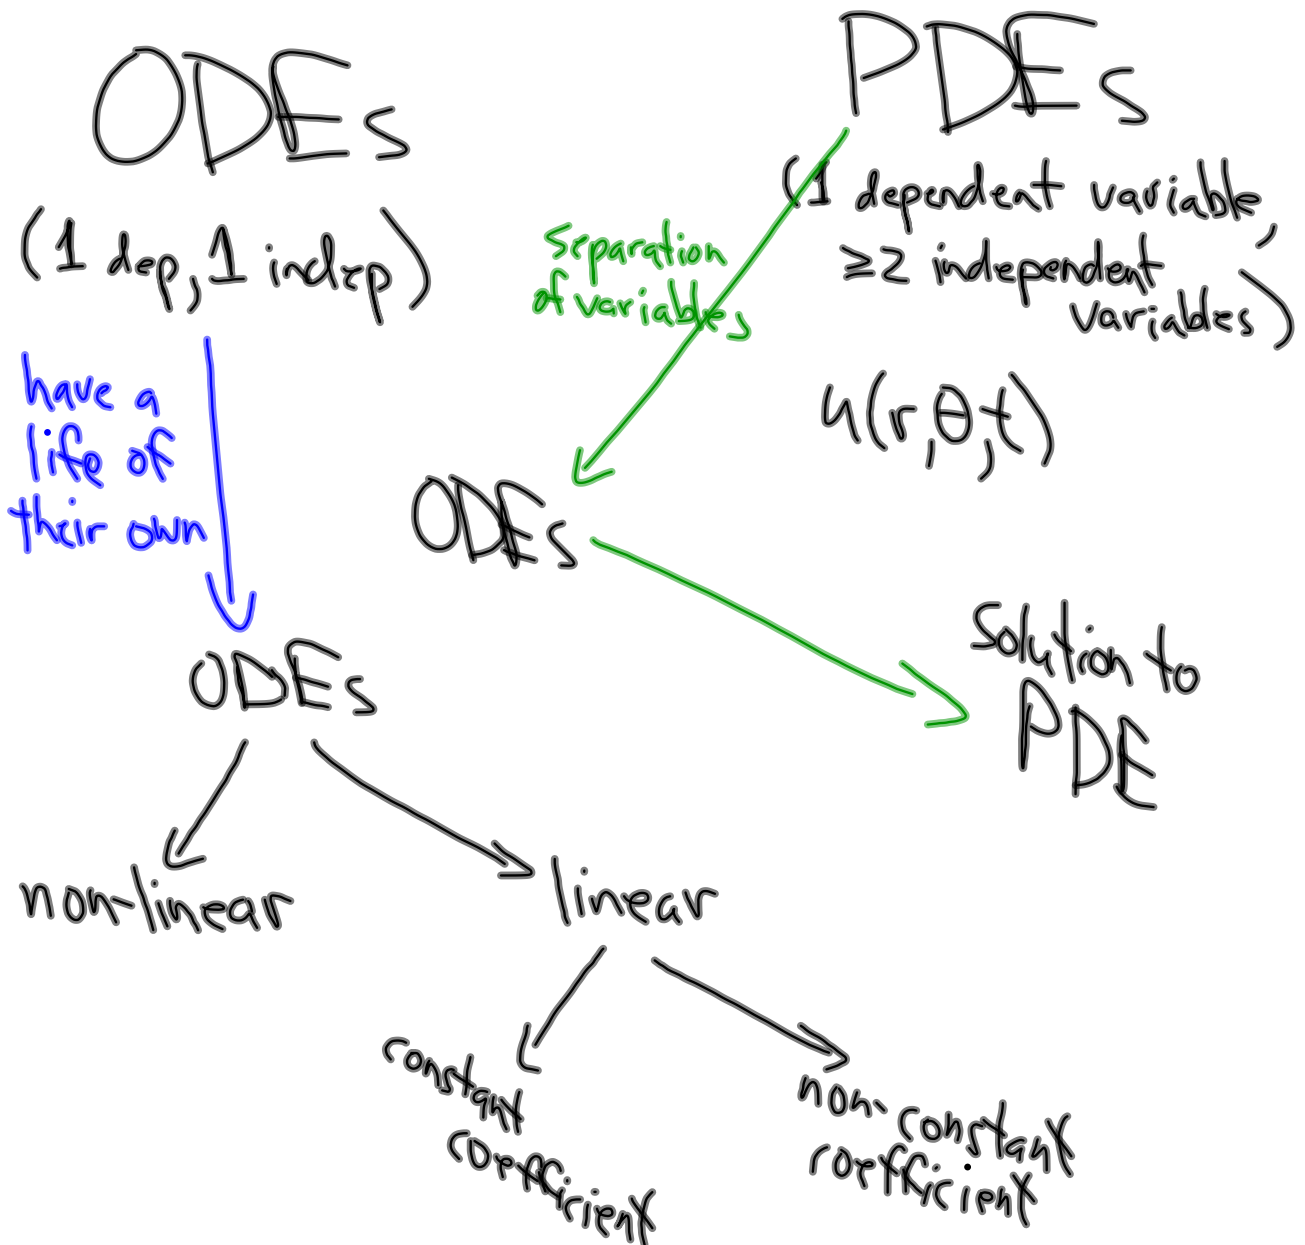 ODEs
(1 dep, 1 indep)
have a
life of
their own
ODEs
non-linear
linear
constant
coefficient
non-constant
coefficient
PDEs
(1 dependent variable,
≥2 independent
variables)
u(r,θ,t)
Separation
of variables
ODEs
Solution to
PDE